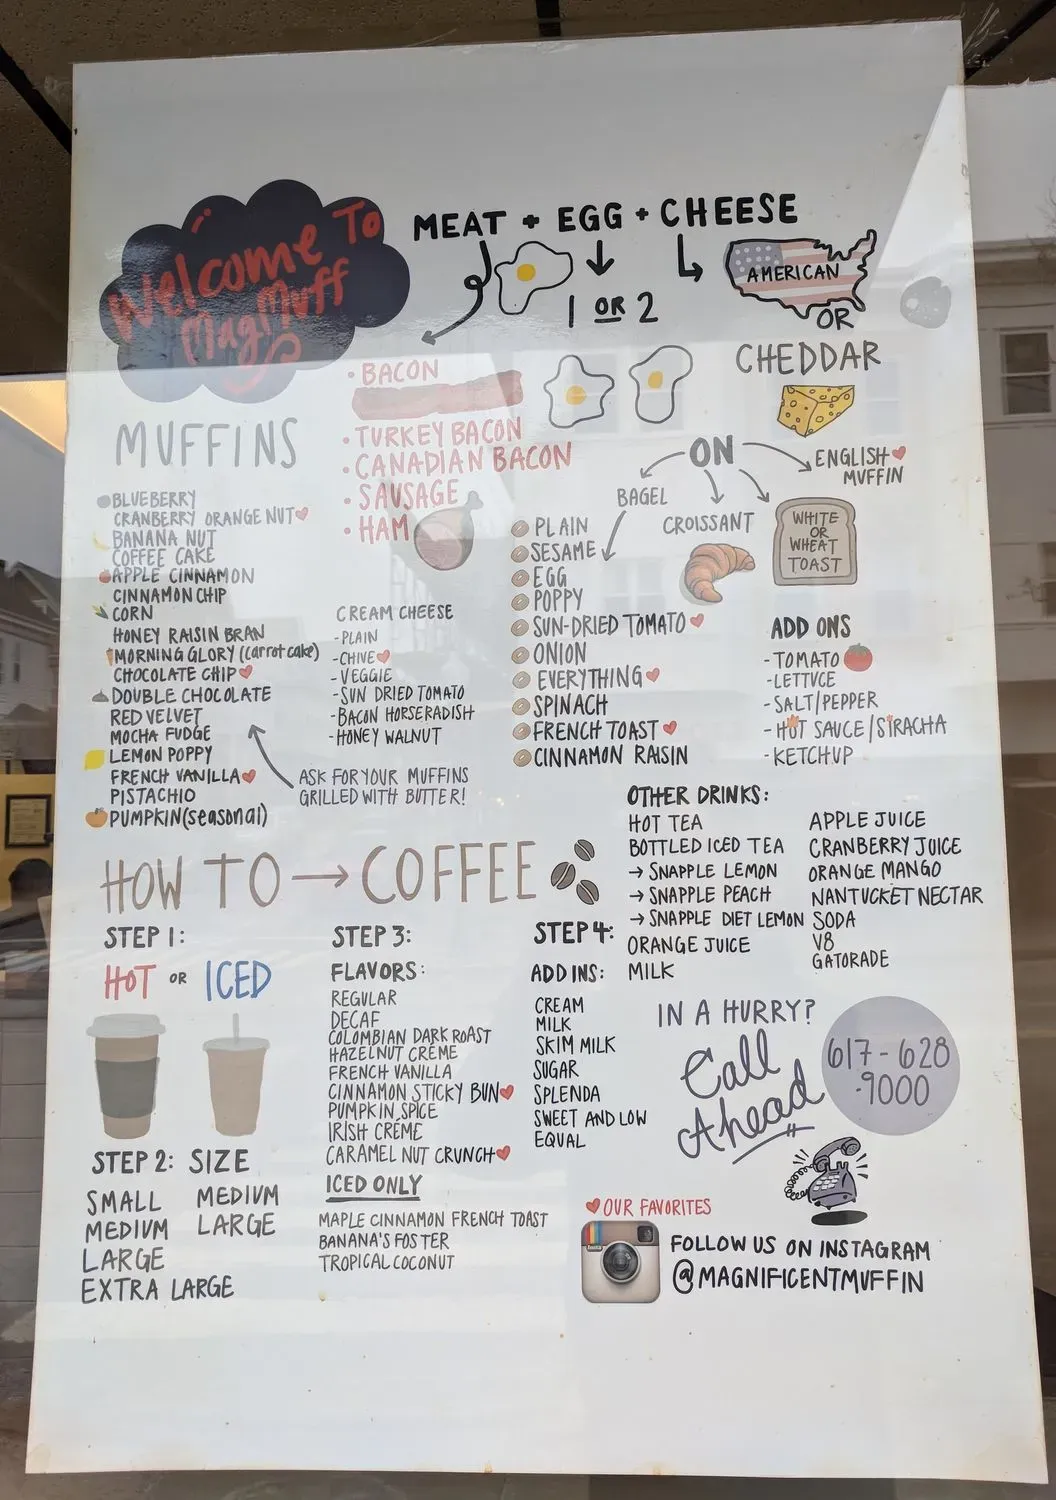 Welcome To
MagMuff
MEAT + EGG + CHEESE
1 OR 2
AMERICAN
OR
CHEDDAR
• BACON
• TURKEY BACON
• CANADIAN BACON
• SAUSAGE
• HAM
ON
BAGEL
CROISSANT
ENGLISH
MUFFIN
WHITE
OR
WHEAT
TOAST
PLAIN
SESAME
EGG
POPPY
SUN-DRIED TOMATO
ONION
EVERYTHING
SPINACH
FRENCH TOAST
CINNAMON RAISIN
ADD ONS
- TOMATO
- LETTUCE
- SALT/PEPPER
- HOT SAUCE/SIRACHA
- KETCHUP
MUFFINS
BLUEBERRY
CRANBERRY ORANGE NUT
BANANA NUT
COFFEE CAKE
APPLE CINNAMON
CINNAMON CHIP
CORN
HONEY RAISIN BRAN
MORNING GLORY (carrot cake)
CHOCOLATE CHIP
DOUBLE CHOCOLATE
RED VELVET
MOCHA FUDGE
LEMON POPPY
FRENCH VANILLA
PISTACHIO
PUMPKIN (seasonal)
CREAM CHEESE
- PLAIN
- CHIVE
- VEGGIE
- SUN DRIED TOMATO
- BACON HORSERADISH
- HONEY WALNUT
ASK FOR YOUR MUFFINS
GRILLED WITH BUTTER!
OTHER DRINKS:
HOT TEA
BOTTLED ICED TEA
→ SNAPPLE LEMON
→ SNAPPLE PEACH
→ SNAPPLE DIET LEMON
ORANGE JUICE
MILK
APPLE JUICE
CRANBERRY JUICE
ORANGE MANGO
NANTUCKET NECTAR
SODA
V8
GATORADE
HOW TO → COFFEE
STEP 1:
HOT OR ICED
STEP 2: SIZE
SMALL
MEDIUM
LARGE
EXTRA LARGE
MEDIUM
LARGE
STEP 3:
FLAVORS:
REGULAR
DECAF
COLOMBIAN DARK ROAST
HAZELNUT CRÈME
FRENCH VANILLA
CINNAMON STICKY BUN
PUMPKIN SPICE
IRISH CRÈME
CARAMEL NUT CRUNCH
ICED ONLY
MAPLE CINNAMON FRENCH TOAST
BANANA'S FOSTER
TROPICAL COCONUT
STEP 4:
ADD INS:
CREAM
MILK
SKIM MILK
SUGAR
SPLENDA
SWEET AND LOW
EQUAL
IN A HURRY?
Call
Ahead
617-628
-9000
OUR FAVORITES
FOLLOW US ON INSTAGRAM
@MAGNIFICENTMUFFIN